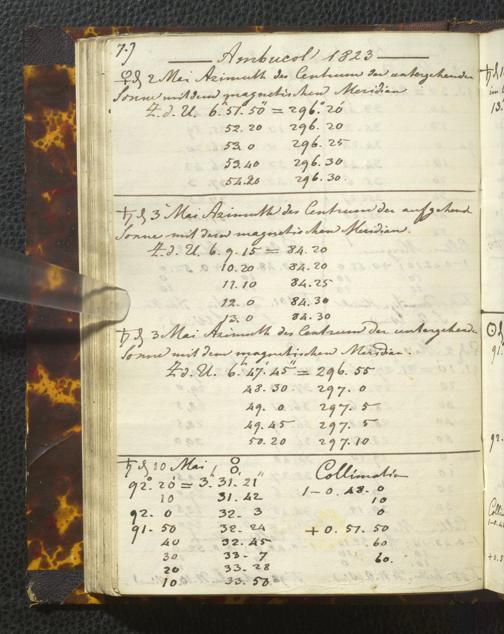 7.)
Ambucol 1823
♀ d 2 Mai Azimuth des Centrum der untergehenden
Sonne mit dem magnetischen Meridian
Z. d. U. 6. 51. 50 = 296. 20
52. 20 296. 20
53. 0 296. 25
53. 40 296. 30
54. 20 296. 30.
♄ d 3 Mai Azimuth des Centrum der aufgehend
Sonne mit dem magnetischen Meridian.
Z. d. U. 6. 9. 15 = 84. 20
10. 20 84. 20
11. 10 84. 25
12. 0 84. 30
13. 0 84. 30
♄ d 3 Mai Azimuth des Centrum der untergehende
Sonne mit dem magnetischen Meridian.
Z. d. U. 6. 47. 45" = 296. 55
48. 30 297. 0
49. 0 297. 5
49. 45 297. 5
50. 20 297. 10
♄ d 10 Mai Collimation
92. 20 = 3. 31. 21" 1 - 0. 48. 0
10 31. 42 10
92. 0 32. 3 0
91. 50 32. 24 + 0. 57. 50
40 32. 45 60
30 33. 7 60.
20 33. 28
10 33. 50